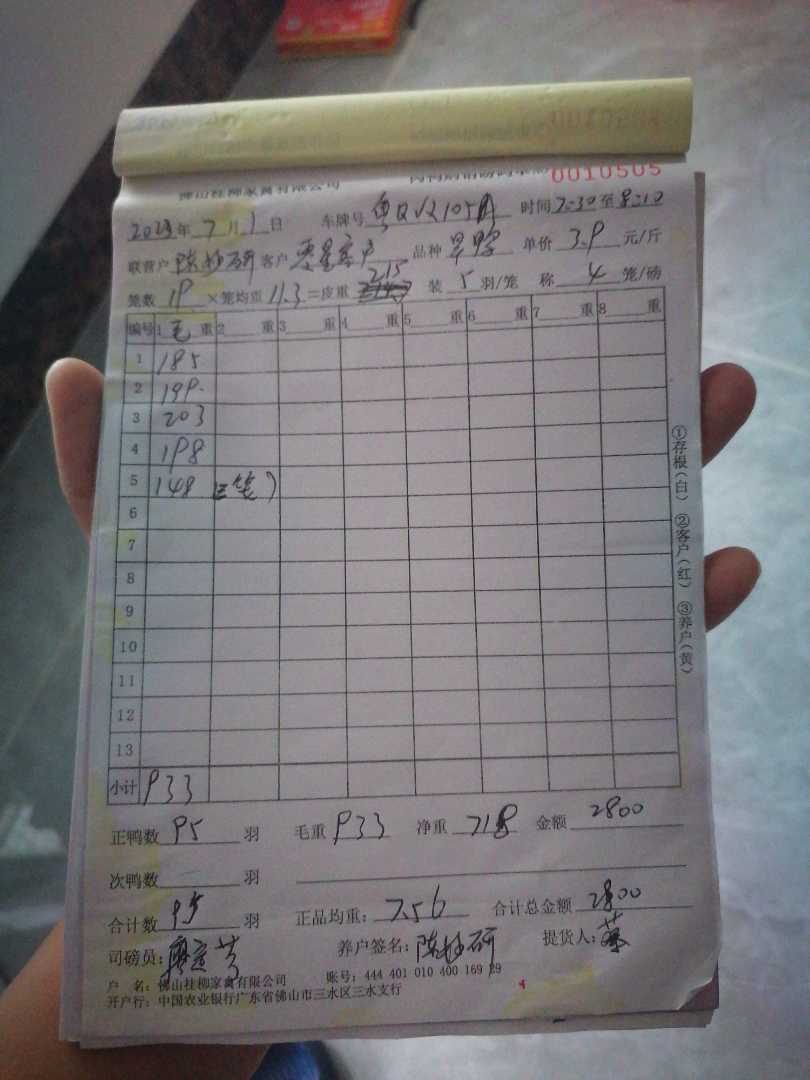 0010505
佛山桂柳家禽有限公司
2023年 7月 1日 车牌号 时间 7:30至8:10
联营户 陈 研 客户 零星客户 品种 旱鸭 单价 3.9 元/斤
笼数 19 ×笼均重 11.3 =皮重 215 装 5 羽/笼 称 4 笼/磅
编号 1 毛 重 2 重 3 重 4 重 5 重 6 重 7 重 8 重
1 185
2 199
3 203
4 198
5 148 (三笼)
6
7
8
9
10
11
12
13
小计 933
①存根(白) ②客户(红) ③养户(黄)
正鸭数 95 羽 毛重 933 净重 718 金额 2800
次鸭数 羽
合计数 95 羽 正品均重: 7.56 合计总金额 2800
司磅员: 养户签名: 陈 研 提货人: 
户 名: 佛山桂柳家禽有限公司 账号: 444 401 010 400 169 29
开户行: 中国农业银行广东省佛山市三水区三水支行